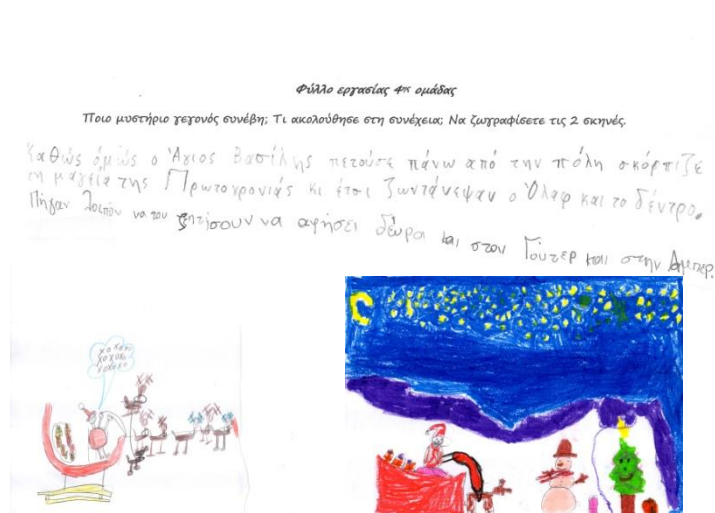 Φύλλο εργασίας 4ης ομάδας
Ποιο μυστήριο γεγονός συνέβη; Τι ακολούθησε στη συνέχεια; Να ζωγραφίσετε τις 2 σκηνές.
Καθώς όμως ο Άγιος Βασίλης πετούσε πάνω από την πόλη σκόρπιζε
τη μαγεία της Πρωτοχρονιάς κι έτσι ζωντάνεψαν ο Όλαφ και το δέντρο.
Πήγαν λοιπόν να του ζητήσουν να αφήσει δώρα και στον Γούτερ και στην Άμπερ.
χο χο χο
χο χο χο
χο χο χο